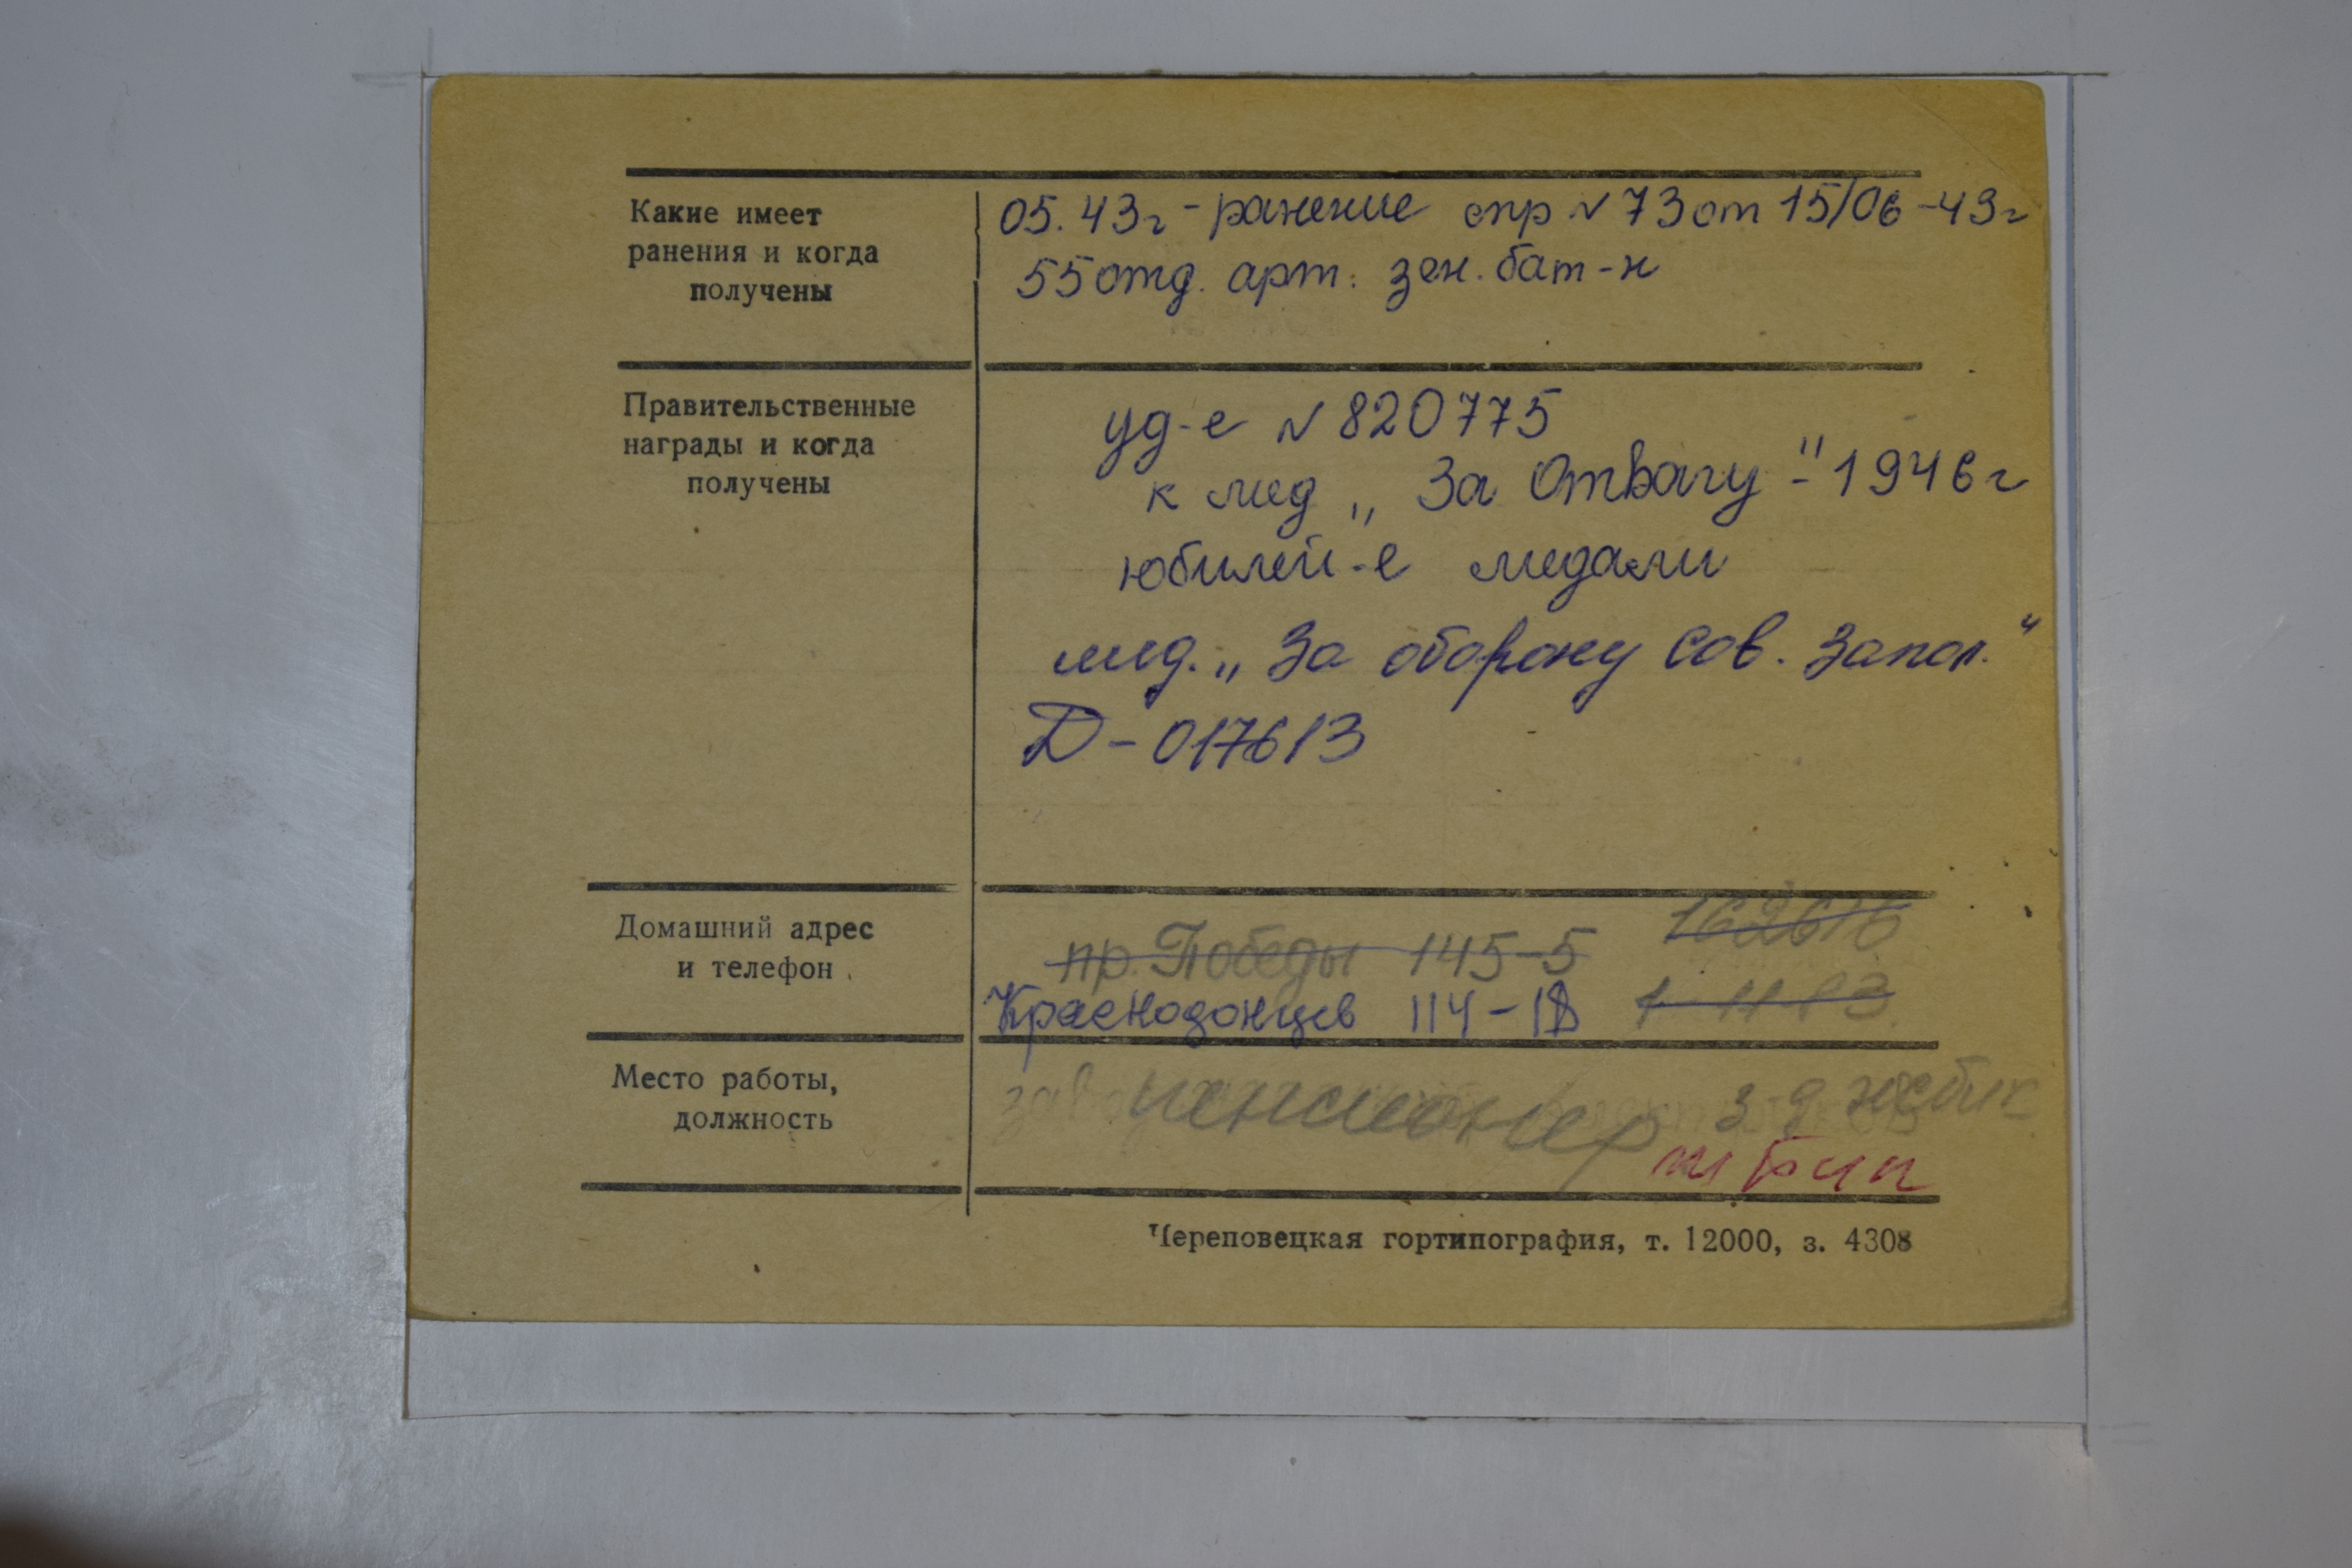 Какие имеет
ранения и когда
получены
05.43г - ранение спр № 73 от 15/06-43г
55 отд. арт. зен. бат-н
Правительственные
награды и когда
получены
уд-е № 820775
к мед „За Отвагу" - 1946г
юбилей-е медали
мед. „За оборону Сов. Запол."
Д-017613
Домашний адрес
и телефон
пр. Победы 145-5
Краснодонцев 114-
Место работы,
должность
пенсионер
Череповецкая гортипография, т. 12000, з. 4308